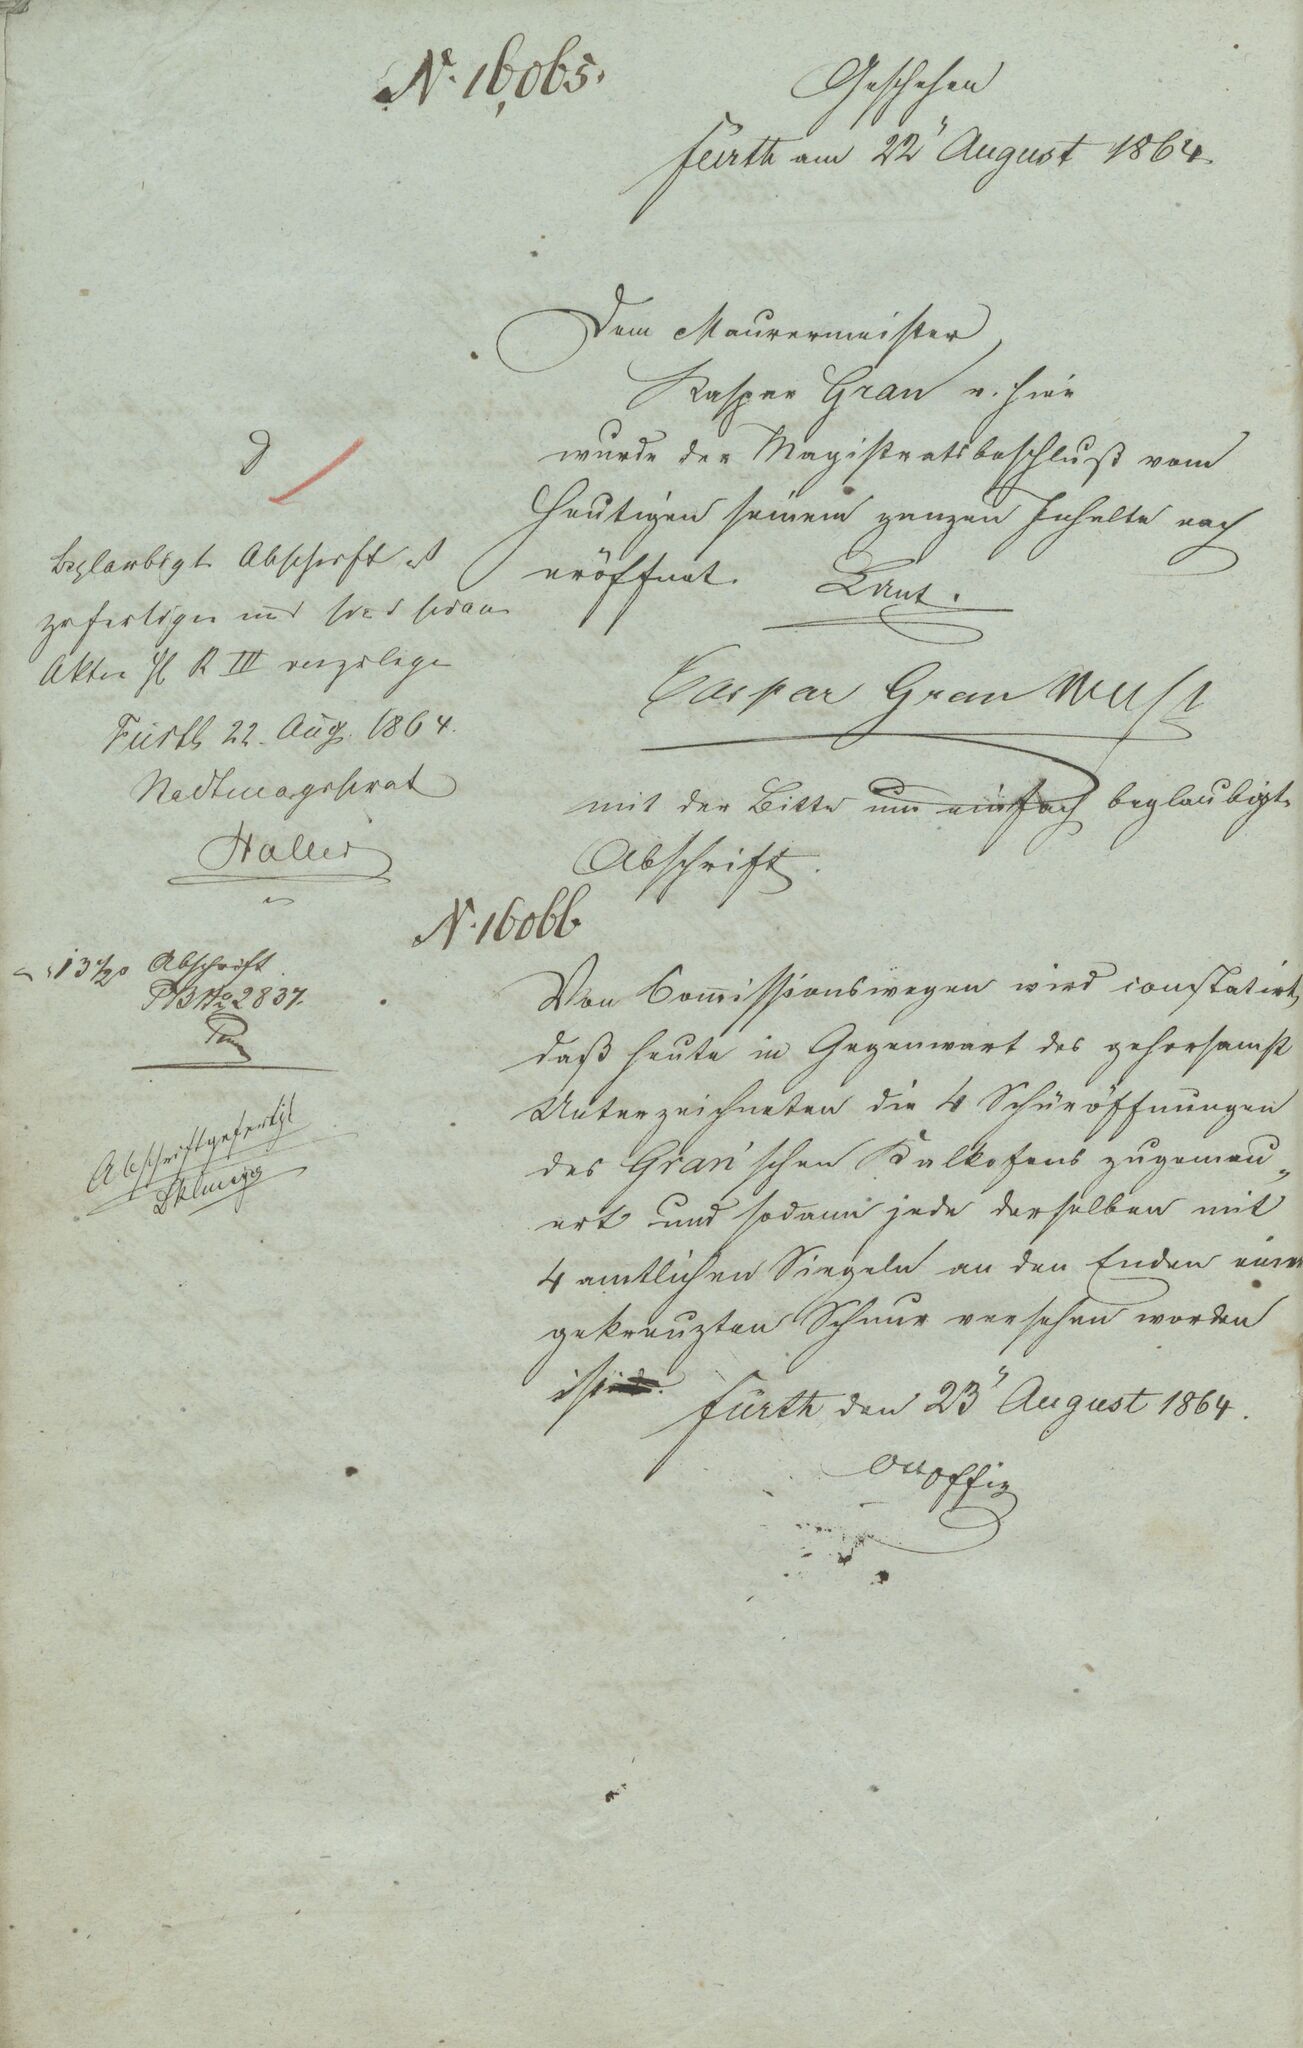 N. 16,065.
Geschehen
Fürth am 22" August 1864.
Dem Maurermeister
Kaspar Gran v. hier
wurde der Magistratsbeschluß vom
Heutigen seinem ganzen Inhalte nach
eröffnet.
Caspar Gran
mit der Bitte um einfach beglaubigte
Abschrift.
N. 16066
Von Commissionswegen wird constatirt,
daß heute in Gegenwart des gehorsamst
Unterzeichneten die 4 Schüröffnungen
des Gran'schen Kalkofens zugemau„
ert und sodann jede derselben mit
4 amtlichen Siegeln an den Enden einer
gekreuzten Schnur versehen worden
ist.
Fürth den 23" August 1864.
Beglaubigte Abschrift ist
zu fertigen und
Akten R III
Fürth 22. Aug. 1864.
Stadtmagistrat
Haller
Abschrift
No 2837.
Abschrift gefertigt